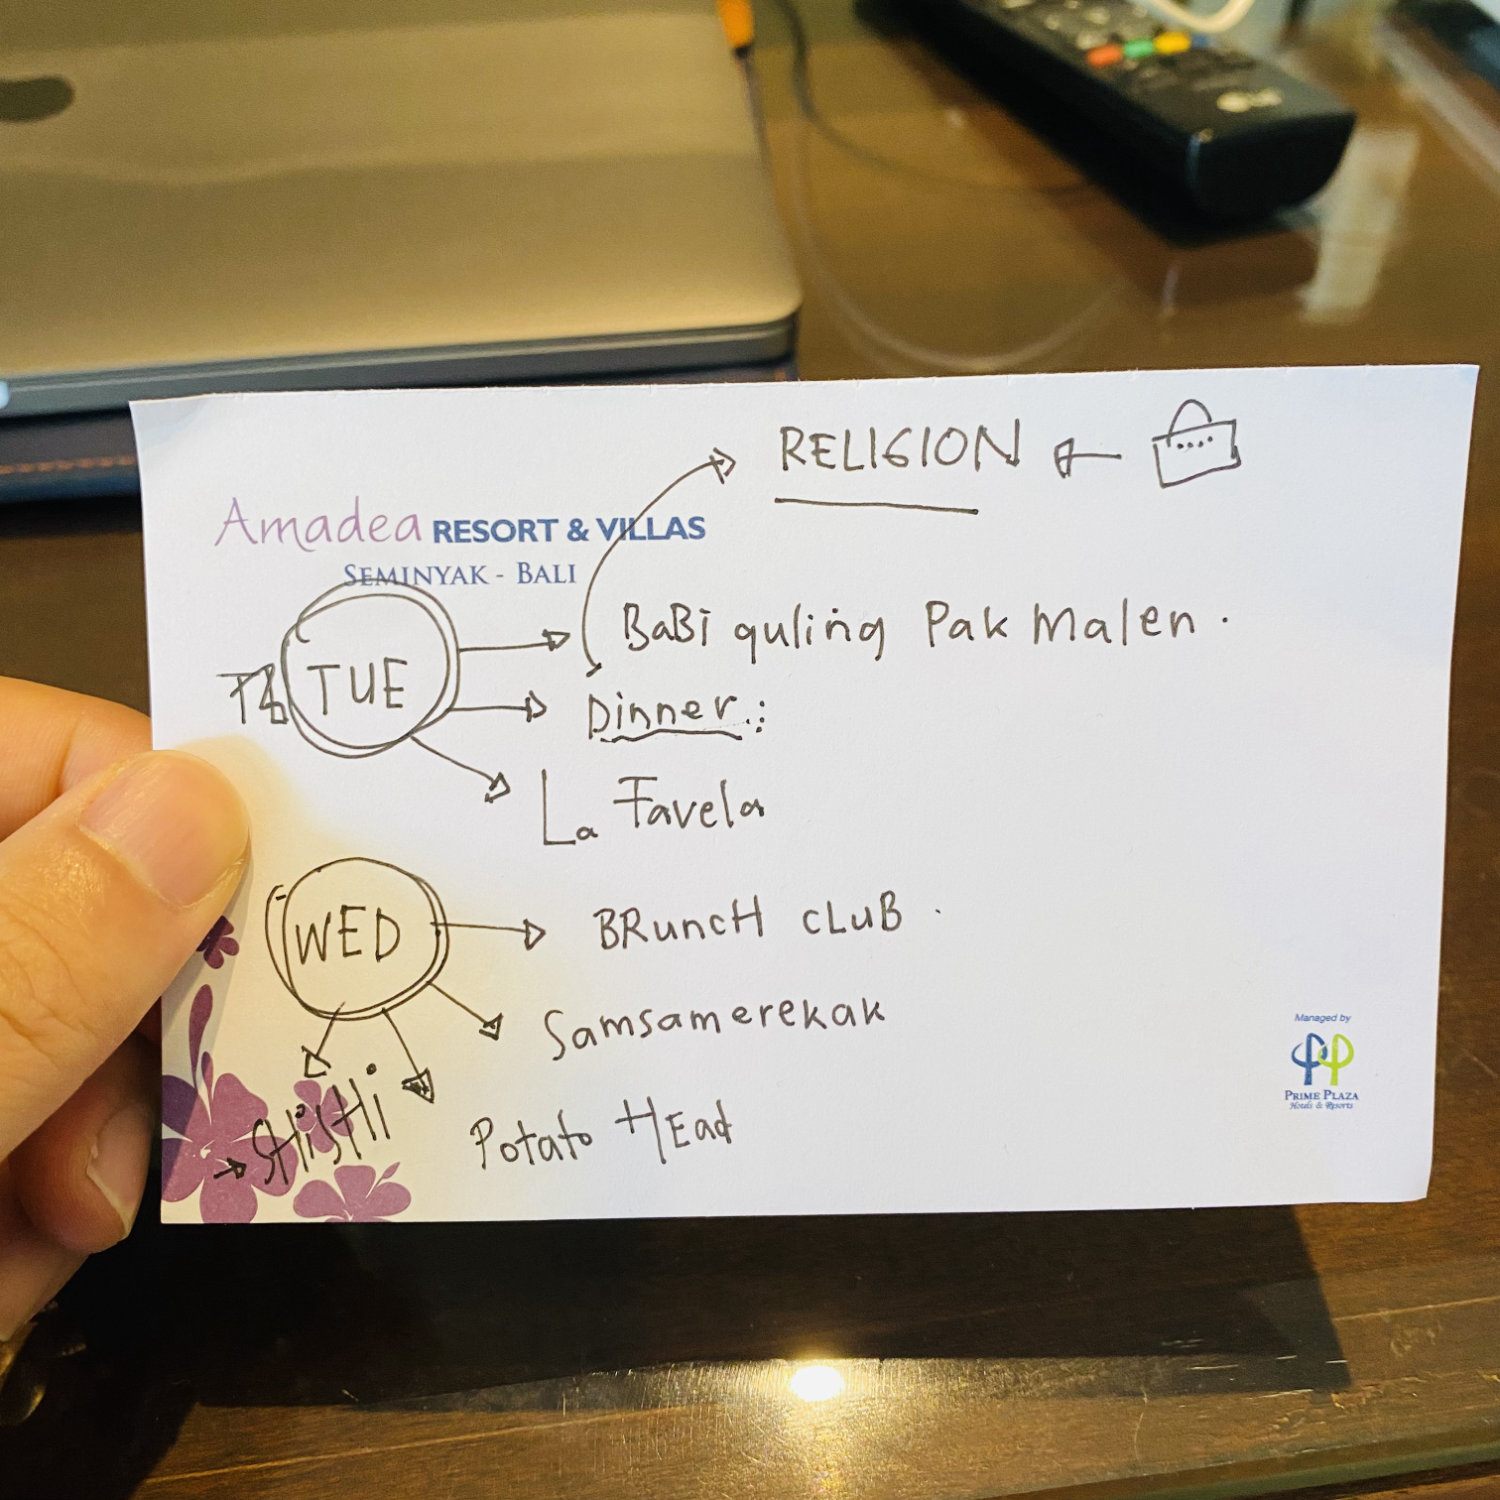 RELIGION
Amadea RESORT & VILLAS
SEMINYAK - BALI
TUE
BaBi guling Pak Malen.
Dinner:
La Favela
WED
BRuncH cLuB.
Samsamerekak
SHiSHi
Potato HEad
Managed by
PRIME PLAZA
Hotels & Resorts
LG